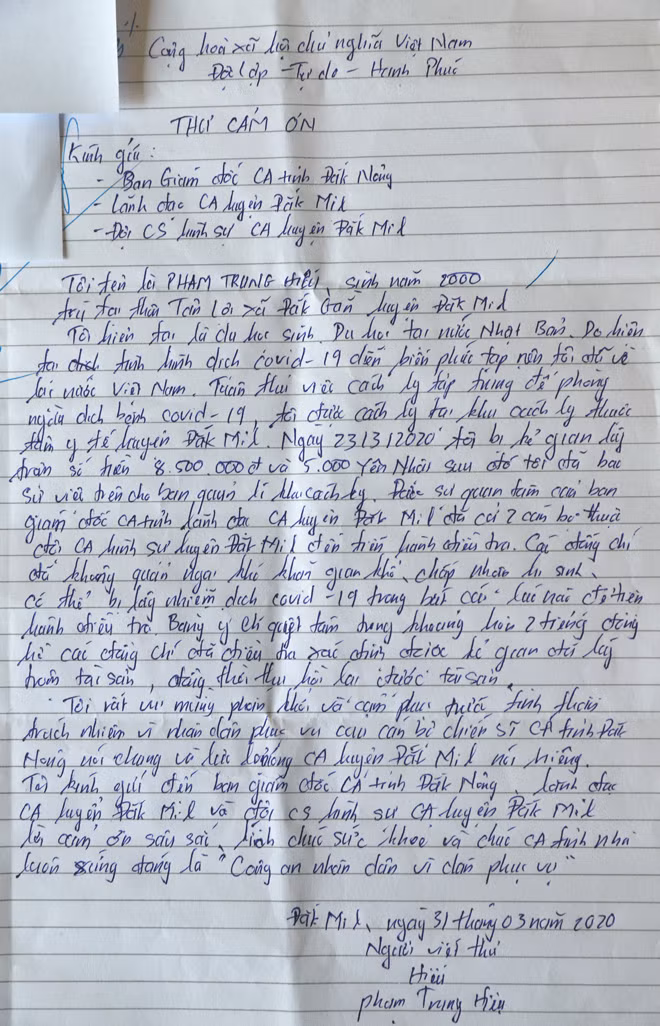 Cộng hoà xã hội chủ nghĩa Việt Nam
Độc lập - Tự do - Hạnh Phúc
THƯ CẢM ƠN
Kính gửi:
- Ban Giám đốc CA tỉnh Đăk Nông
- Lãnh đạo CA huyện Đăk Mil
- Đội CS hình sự CA huyện Đăk Mil
Tôi tên là PHẠM TRUNG HIẾU, sinh năm 2000
trú tại thôn Tân Lợi xã Đăk Gằn huyện Đăk Mil
Tôi hiện tại là du học sinh. Du học tại nước Nhật Bản. Do hiện
tại tình hình dịch covid-19 diễn biến phức tạp nên tôi đã về
lại nước Việt Nam. Tuân thủ việc cách ly tập trung để phòng
ngừa dịch bệnh covid-19 tôi được cách ly tại khu cách ly thuộc
tâm y tế huyện Đăk Mil. Ngày 23/3/2020 tôi bị kẻ gian lấy
trộm số tiền 8.500.000đ và 5.000 Yên Nhật sau đó tôi đã báo
sự việc trên cho ban quản lí khu cách ly. Được sự quan tâm của ban
giám đốc CA tỉnh lãnh đạo CA huyện Đăk Mil đã cử 2 cán bộ thuộc
đội CA hình sự huyện Đăk Mil đến tiến hành điều tra. Các đồng chí
đã không quản ngại khó khăn gian khổ, chấp nhận hi sinh,
có thể bị lây nhiễm dịch covid-19 trong bất cứ lúc nào để tiến
hành điều tra. Bằng ý chí quyết tâm trong khoảng hơn 2 tiếng đồng
hồ các đồng chí đã điều tra xác định được kẻ gian đã lấy
trộm tài sản, đồng thời thu hồi lại được tài sản.
Tôi rất vui mừng phấn khởi và cảm phục trước tinh thần
trách nhiệm vì nhân dân phục vụ của cán bộ chiến sĩ CA tỉnh Đăk
Nông nói chung và lực lượng CA huyện Đăk Mil nói riêng.
Tôi kính gửi đến ban giám đốc CA tỉnh Đăk Nông, lãnh đạo
CA huyện Đăk Mil và đội cs hình sự CA huyện Đăk Mil
lời cảm ơn sâu sắc, kính chúc sức khoẻ và chúc CA tỉnh nhà
luôn xứng đáng là "Công an nhân dân vì dân phục vụ"
Đăk Mil, ngày 31 tháng 03 năm 2020
Người viết thư
Hiếu
phạm Trung Hiếu